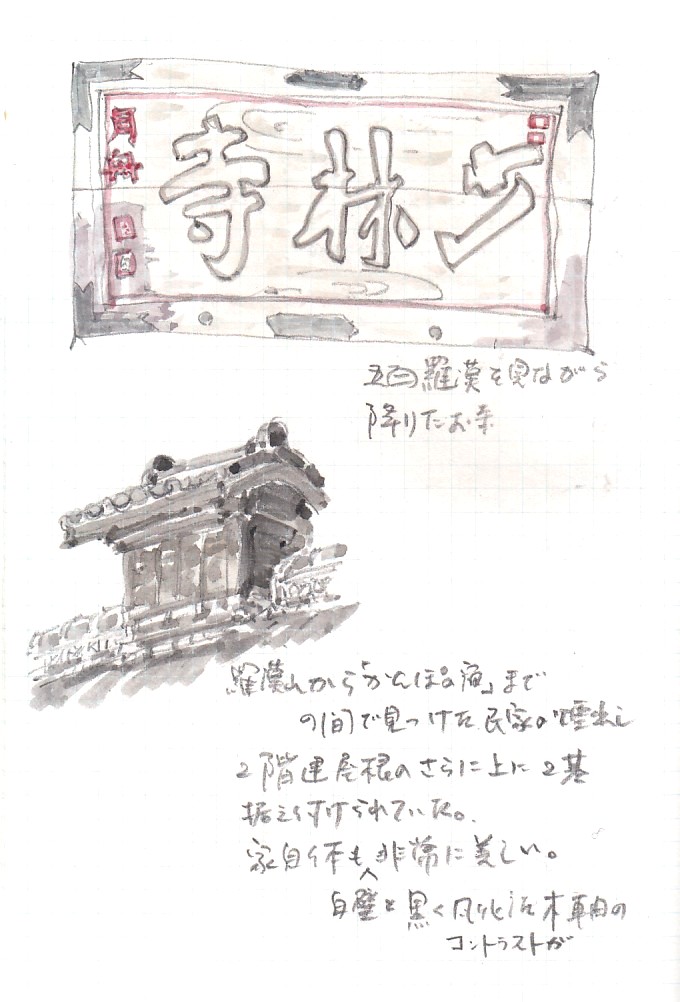 少林寺
月舟
五百羅漢を見ながら
降りたお寺
羅漢山から「かんぽの宿」まで
の間で見つけた民家の煙出し
2階建屋根のさらに上に2基
据え付けられていた。
家自体も非常に美しい。
白壁と黒く風化した木軸の
コントラストが